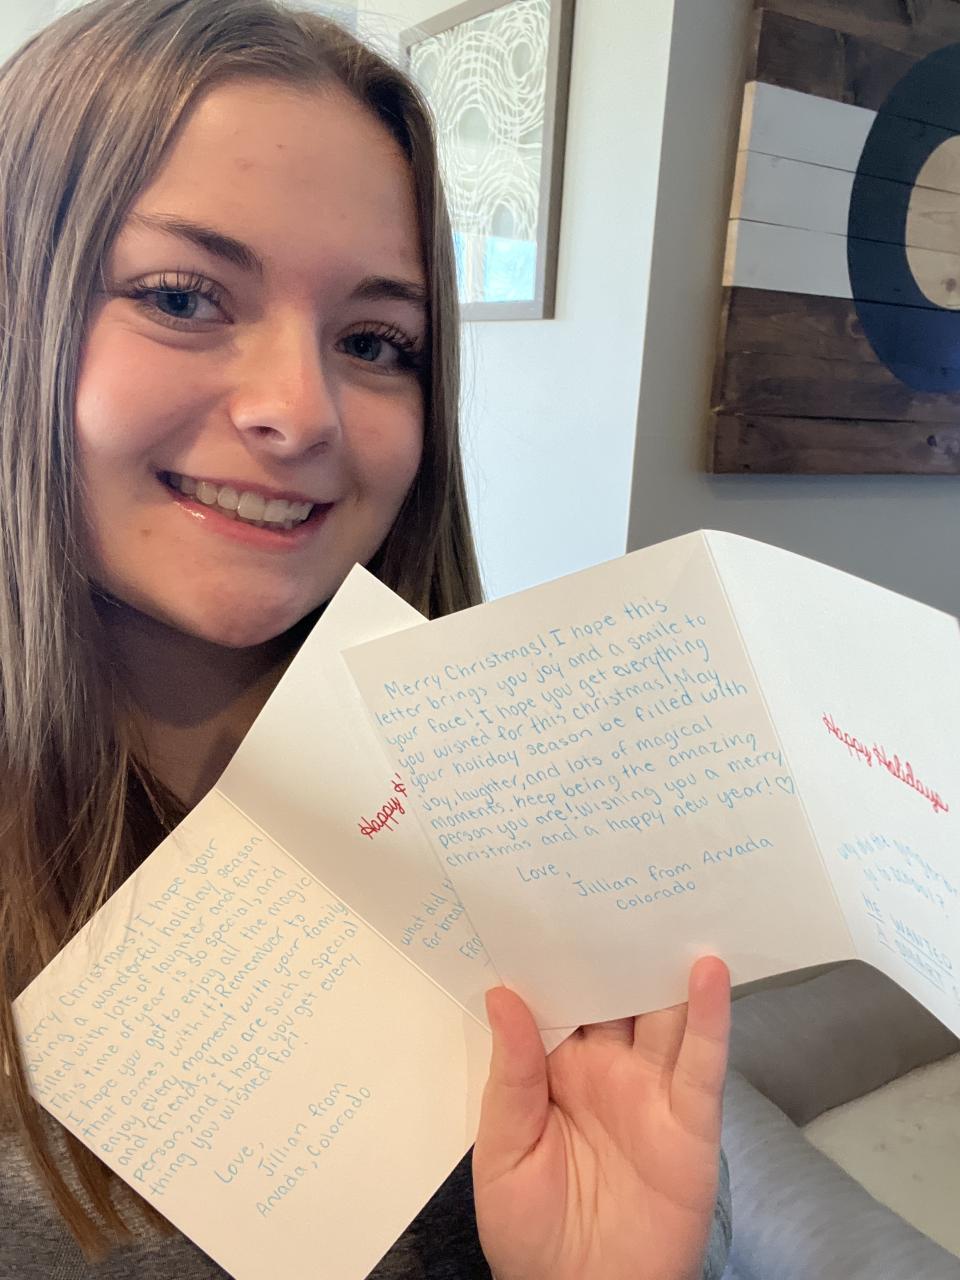 Merry Christmas! I hope this
letter brings you joy and a smile to
your face! I hope you get everything
you wished for this christmas! May
your holiday season be filled with
joy, laughter, and lots of magical
moments. Keep being the amazing
person you are! Wishing you a merry
christmas and a happy new year! ♡
Love,
Jillian from Arvada
Colorado
Happy Holidays
go to
HE WANTED
A SMART
Happy
what did
for
FRO
erry Christmas! I hope your
aving a wonderful holiday season
filled with lots of laughter and fun!
This time of year is so special, and
I hope you get to enjoy all the magic
that comes with it! Remember to
enjoy every moment with your family
and friends. You are such a special
person, and I hope you get every
thing you wished for!
Love,
Jillian from
Arvada, Colorado